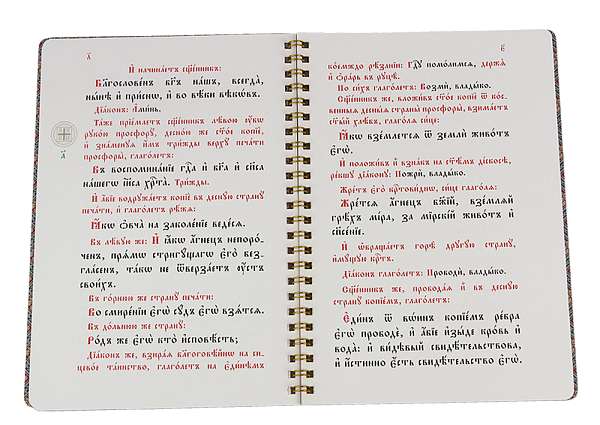 д҃
И҆ начина́етъ сщ҃е́нникъ:
Бл҃гослове́нъ бг҃ъ на́шъ, всегда̀,
ны́нѣ и҆ при́снѡ, и҆ во вѣ́ки вѣкѡ́въ.
Дїа́конъ: А҆ми́нь.
Та́же прїе́млетъ сщ҃е́нникъ лѣ́вою ᲂу҆́бѡ
руко́ю просфорꙋ̀, десно́ю же ст҃о́е копїѐ,
и҆ зна́менꙋѧ и҆́мъ три́жды верхꙋ̀ печа́ти
просфоры̀, глаго́летъ:
д҃
Въ воспомина́нїе гд҃а и҆ бг҃а и҆ сп҃са
на́шегѡ і҆и҃са хрⷭ҇та̀. Три́жды.
И҆ а҆́бїе водрꙋжа́етъ копїѐ въ деснꙋ́ю странꙋ̀
печа́ти, и҆ глаго́летъ рѣ́жѧ:
Ꙗ҆́кѡ ѻ҆вча̀ на заколе́нїе веде́сѧ.
Въ лѣ́вꙋю же: И҆ ꙗ҆́кѡ а҆́гнецъ непоро́-
ченъ, прѧ́мѡ стригꙋ́щагѡ є҆го̀ без-
гла́сенъ, та́кѡ не ѿверза́етъ ᲂу҆́стъ
свои́хъ.
Въ го́рнюю же странꙋ̀ печа́ти:
Во смире́нїи є҆гѡ̀ сꙋ́дъ є҆гѡ̀ взѧ́тсѧ.
Въ до́льнюю же странꙋ̀:
Ро́дъ же є҆гѡ̀ кто̀ и҆сповѣ́сть;
Дїа́конъ же, взира́ѧ бл҃гоговѣ́йнѡ на си-
цево́е та́инство, глаго́летъ на є҆ди́нѣмъ
є҃
ко́емждо рѣ́занїи: Гдⷭ҇ꙋ помо́лимсѧ, держѧ̀
и҆ ѻ҆ра́рь въ рꙋцѣ̀.
По си́хъ глаго́летъ: Возмѝ, влады́ко.
Сщ҃е́нникъ же, вложи́въ ст҃о́е копїѐ ѿ ко́с-
венныѧ десны́ѧ страны̀ просфоры̀, взима́етъ
ст҃ы́й хлѣ́бъ, глаго́лѧ си́це:
Ꙗ҆́кѡ взе́млетсѧ ѿ землѝ живо́тъ
є҆гѡ̀.
И҆ положи́въ и҆̀ взна́къ на ст҃ѣ́мъ ді́скосѣ,
ре́кшꙋ дїа́конꙋ: Пожрѝ, влады́ко.
Жре́тъ є҆го̀ крⷭ҇тови́днѡ, си́це глаго́лѧ:
Жре́тсѧ а҆́гнецъ бж҃їй, взе́млѧй
грѣ́хъ мі́ра, за мїрскі́й живо́тъ и҆
сп҃се́нїе.
И҆ ѡ҆враща́етъ горѣ̀ дрꙋгꙋ́ю странꙋ̀,
и҆мꙋ́щꙋю крⷭ҇тъ.
Дїа́конъ глаго́летъ: Прободѝ, влады́ко.
Сщ҃е́нникъ же, пробода́ѧ и҆̀ въ деснꙋ́ю
странꙋ̀ копїе́мъ, глаго́летъ:
Є҆ди́нъ ѿ во́инъ копїе́мъ ре́бра
є҆гѡ̀ прободѐ, и҆ а҆́бїе и҆зы́де кро́вь и҆
вода̀: и҆ ви́дѣвый свидѣ́тельствова,
и҆ и҆́стинно є҆́сть свидѣ́тельство є҆гѡ̀.